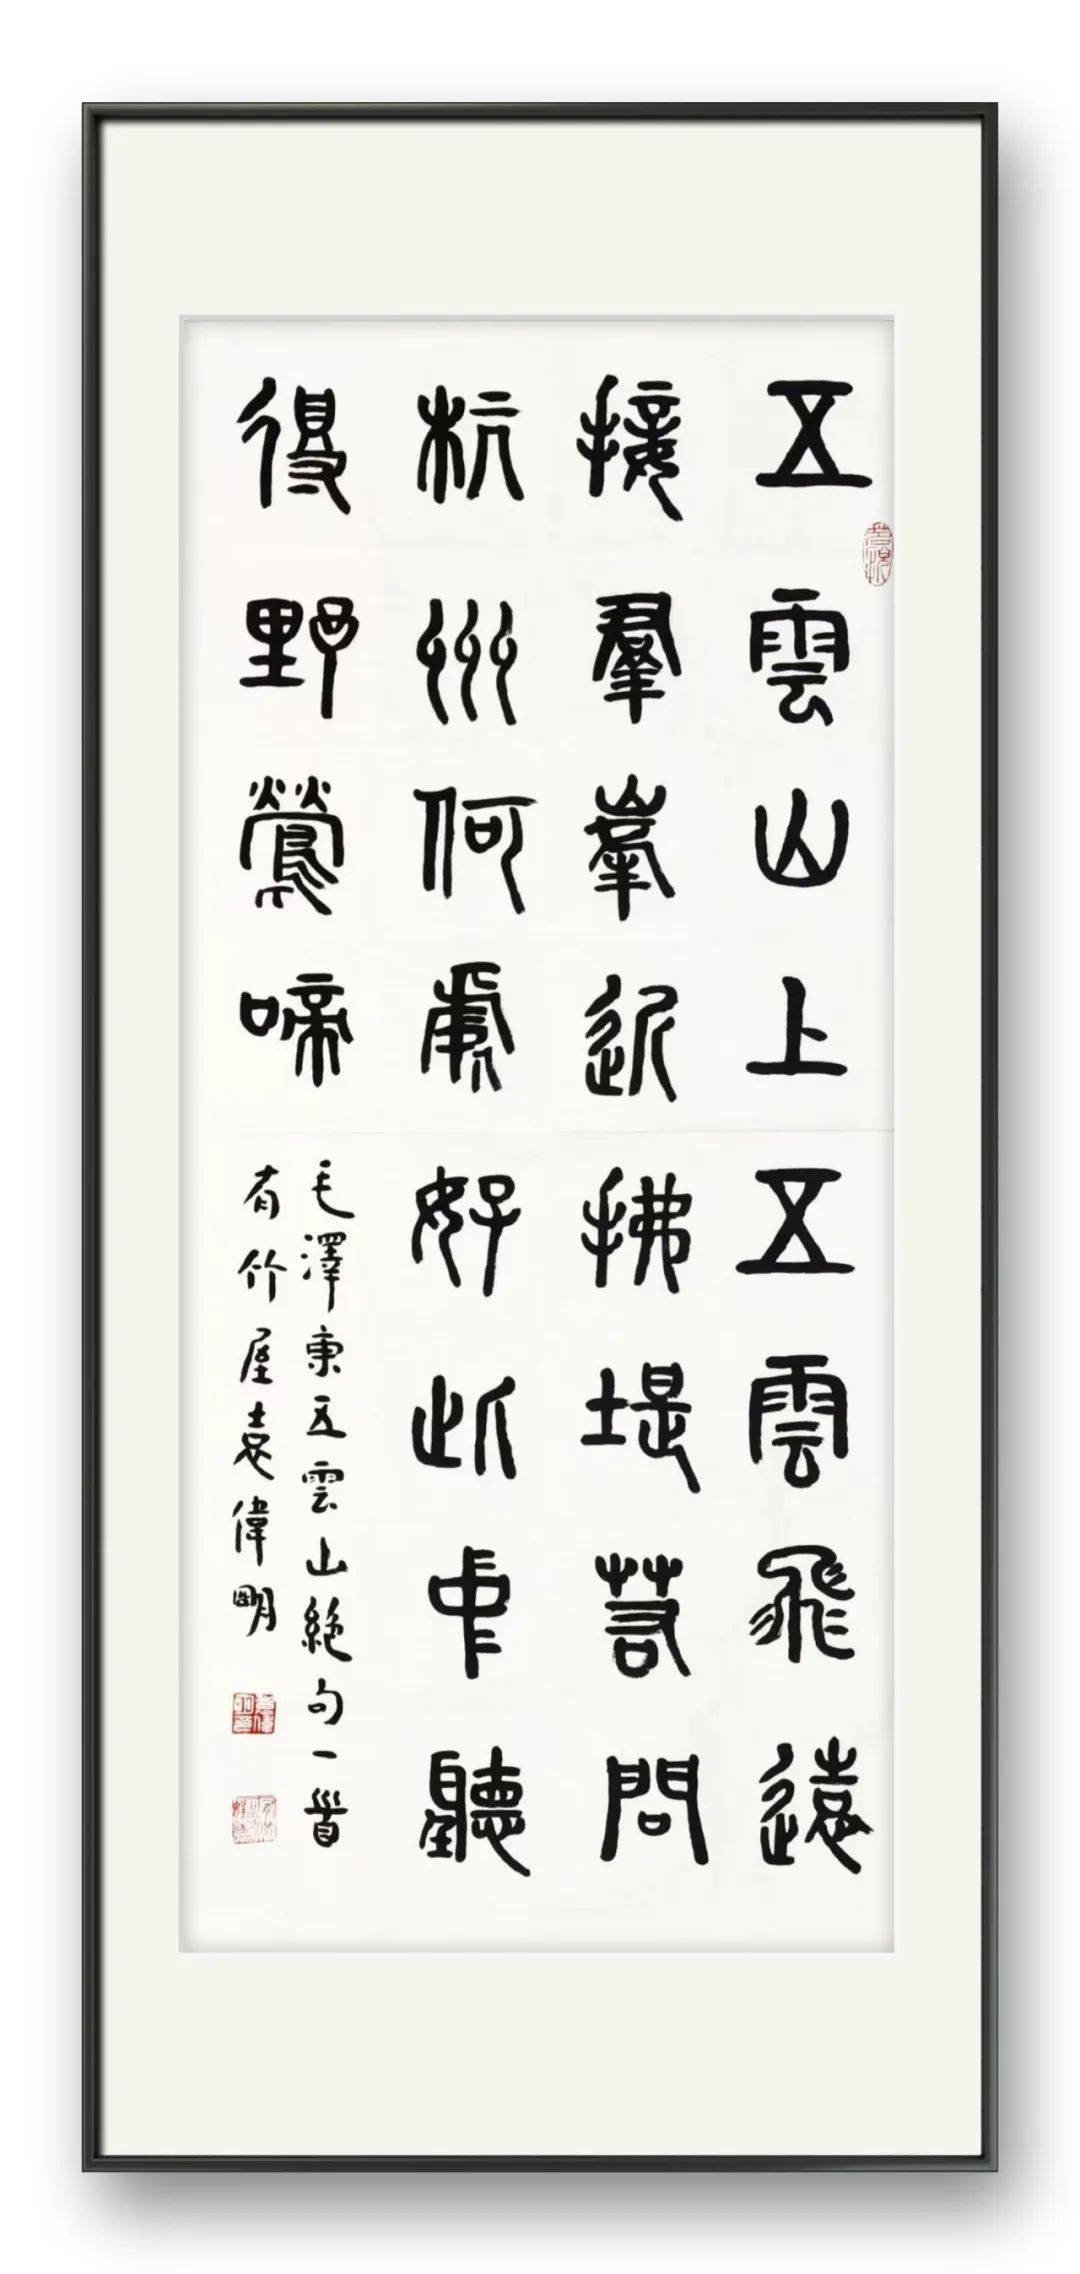 五雲山上五雲飛遠
接羣峯近拂堤若問
杭州何處好此中聽
得野鶯啼
毛澤東五雲山絶句一首
有竹屋袁偉明